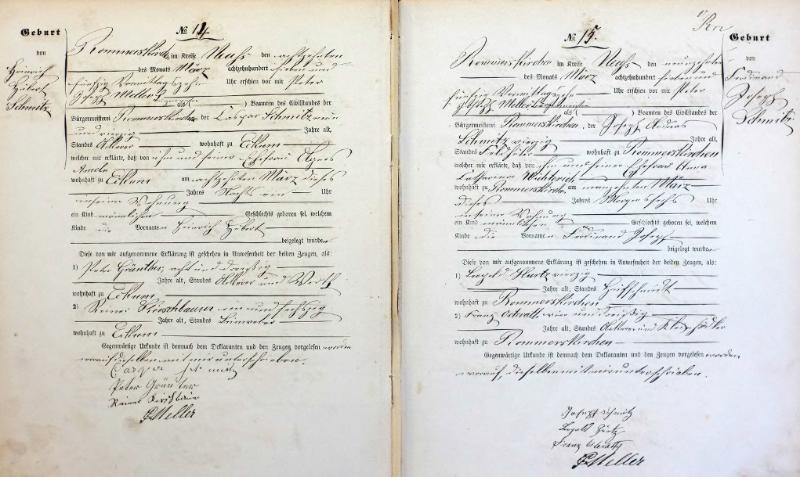 Geburt
von
Heinrich
Hubert
Schmitz
№ 14
Rommerskirchen im Kreise Neuß den achtzehnten
des Monats März achtzehnhundert sieben und
fünfzig Vormittags zehn Uhr erschien vor mir Peter
Joseph Meller
als Beamten des Civilstandes der
Bürgermeisterei Rommerskirchen der Caspar Schmitz ein
und vierzig Jahre alt,
Standes Ackerer wohnhaft zu Eckum
welcher mir erklärte, daß von ihm und seiner Ehefrau Agnes
wohnhaft zu Eckum am achtzehnten März dieses
Jahres Nachts ein Uhr
in seiner Wohnung
ein Kind männlichen Geschlechts geboren sei, welchem
Kinde die Vornamen Heinrich Hubert
beigelegt wurden
Diese von mir aufgenommene Erklärung ist geschehen in Anwesenheit der beiden Zeugen, als:
1) Peter Gräntler, acht und dreißig
Jahre alt, Standes Ackerer und Wirth
wohnhaft zu Eckum
2)
Jahre alt, Standes
wohnhaft zu Eckum
Gegenwärtige Urkunde ist demnach dem Deklaranten und den Zeugen vorgelesen worden
worauf dieselben mit mir unterschrieben.
Peter
Meller
№ 15.
Geburt
von
Ferdinand
Joseph
Schmitz
Rommerskirchen im Kreise Neuß den neunzehnten
des Monats März achtzehnhundert sieben und
fünfzig Vormittags zehn Uhr erschien vor mir Peter
Joseph Meller Bürgermeister
als Beamten des Civilstandes der
Bürgermeisterei Rommerskirchen, der Joseph
Schmitz vierzig Jahre alt,
Standes wohnhaft zu Rommerskirchen
welcher mir erklärte, daß von ihm und seiner Ehefrau Anna
Catharina
wohnhaft zu Rommerskirchen am neunzehnten März
dieses Jahres Morgens sechs Uhr
in seiner Wohnung
ein Kind männlichen Geschlechts geboren sei, welchem
Kinde die Vornamen Ferdinand Joseph
beigelegt wurden
Diese von mir aufgenommene Erklärung ist geschehen in Anwesenheit der beiden Zeugen, als:
1) Leopold vierzig
Jahre alt, Standes
wohnhaft zu Rommerskirchen
2) Franz vier und dreißig
Jahre alt, Standes Ackerer und
wohnhaft zu Rommerskirchen
Gegenwärtige Urkunde ist demnach dem Deklaranten und den Zeugen vorgelesen worden
worauf dieselben mit mir unterschrieben.
Joseph Schmitz
Leopold
Franz
Meller